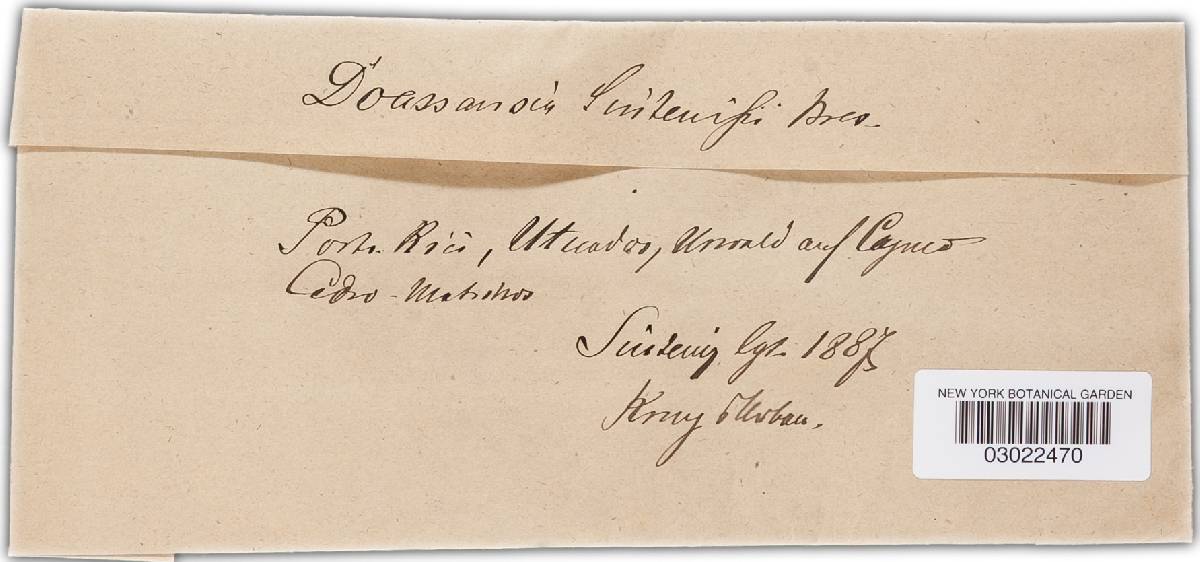 Doassansia Sintenisii Bres.
Porto Rico, Utuados, Urwald auf
Cedro
Sintenis lgt. 1887
Krug & Urban.
NEW YORK BOTANICAL GARDEN
03022470